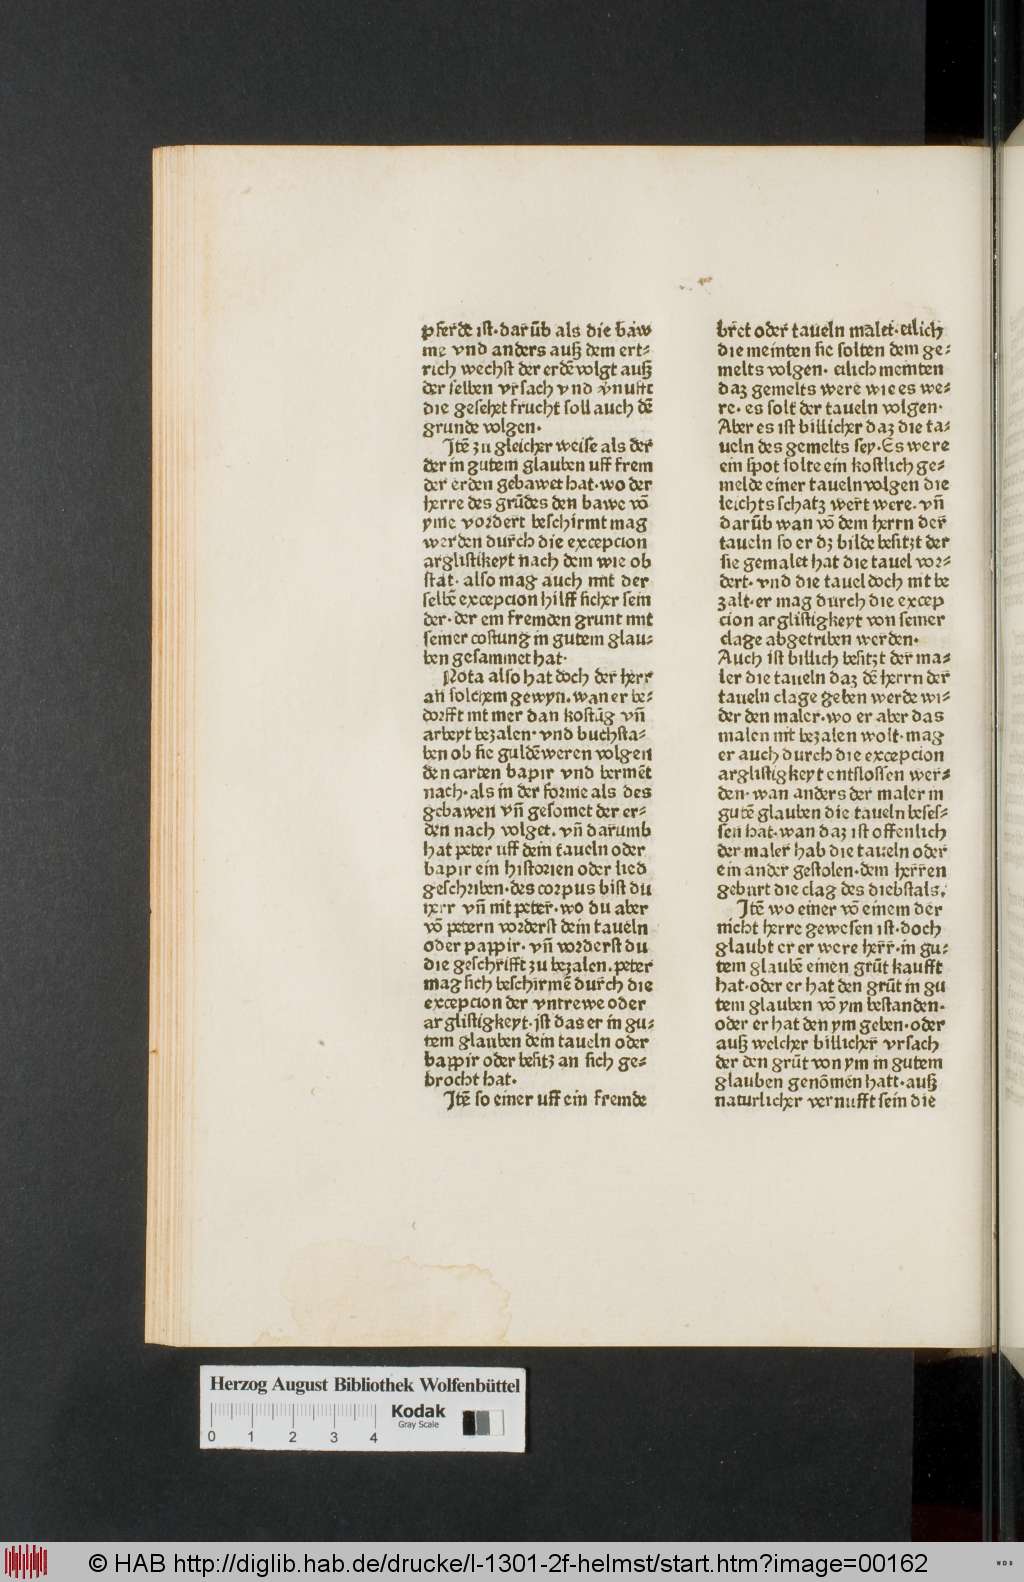 pferde ist·darūb als die bäw
me vnd anders auß dem ert⸗
rich wechst der erdē volgt auß
der selben vrsach vnd vnufft
die gesehet frucht soll auch dē
grunde volgen·
Jtē zu gleicher weise als der
der in gutem glauben uff frem
der erden gebawet hat·wo der
herre des grūdes den bawe vō
yme vordert beschirmt mag
werden durch die excepcion
arglistikeyt nach dem wie ob
stat· also mag auch mit der
selbē excepcion hilff sicher sein
der·der ein fremden grunt mit
seiner costung in gutem glau⸗
ben gesammet hat·
Nota also hat doch der herr
an solchem gewyn·wan er be⸗
dorfft nit mer dan kostūg vn̄
arbeyt bezalen·vnd buchsta⸗
ben ob sie guldē weren volgen
den carten bapir vnd bermēt
nach·als in der forme als des
gebawen vn̄ gesomet der er⸗
den nach volget. vn̄ darumb
hat peter uff dein taueln oder
bapir ein historien oder lied
geschriben·des corpus bist du
herr vn̄ nit peter·wo du aber
vō petern vorderst dein taueln
oder pappir·vn̄ vorderst du
die geschrifft zu bezalen.peter
mag sich beschirmē durch die
excepcion der vntrewe oder
arglistigkeyt·ist das er in gu⸗
tem glauben dein taueln oder
bappir oder besitz an sich ge⸗
brocht hat·
Jtē so einer uff ein fremde
bret oder taueln malet·etlich
die meinten sie solten dem ge⸗
melts volgen· etlich meinten
daz gemelts were wie es we⸗
re· es solt der taueln volgen·
Aber es ist billicher daz die ta⸗
ueln des gemelts sey·Es were
ein spot solte ein kostlich ge⸗
melde einer taueln volgen die
leichts schatz wert were. vn̄
darūb wan vō dem herrn der
taueln so er dz bilde besitzt der
sie gemalet hat die tauel vor⸗
dert·vnd die tauel doch nit be
zalt·er mag durch die excep
cion arglistigkeyt von seiner
clage abgetriben werden·
Auch ist billich besitzt der ma⸗
ler die taueln daz dē herrn der
taueln clage geben werde wi⸗
der den maler·wo er aber das
malen nit bezalen wolt·mag
er auch durch die excepcion
arglistigkeyt entslossen wer⸗
den·wan anders der maler in
gutē glauben die taueln beses⸗
sen hat·wan daz ist offenlich
der maler hab die taueln oder
ein ander gestolen·dem herren
geburt die clag des diebstals.
Jtē wo einer vō einem der
nicht herre gewesen ist·doch
glaubt er er were herr·in gu⸗
tem glaubē einen grūt kaufft
hat·oder er hat den grūt in gu
tem glauben vō ym bestanden·
oder er hat den ym geben·oder
auß welcher billicher vrsach
der den grūt von ym in gutem
glauben genōmen hatt·auß
naturlicher vernufft sein die
Herzog August Bibliothek Wolfenbüttel
Kodak
Gray Scale
0 1 2 3 4
© HAB http://diglib.hab.de/drucke/l-1301-2f-helmst/start.htm?image=00162